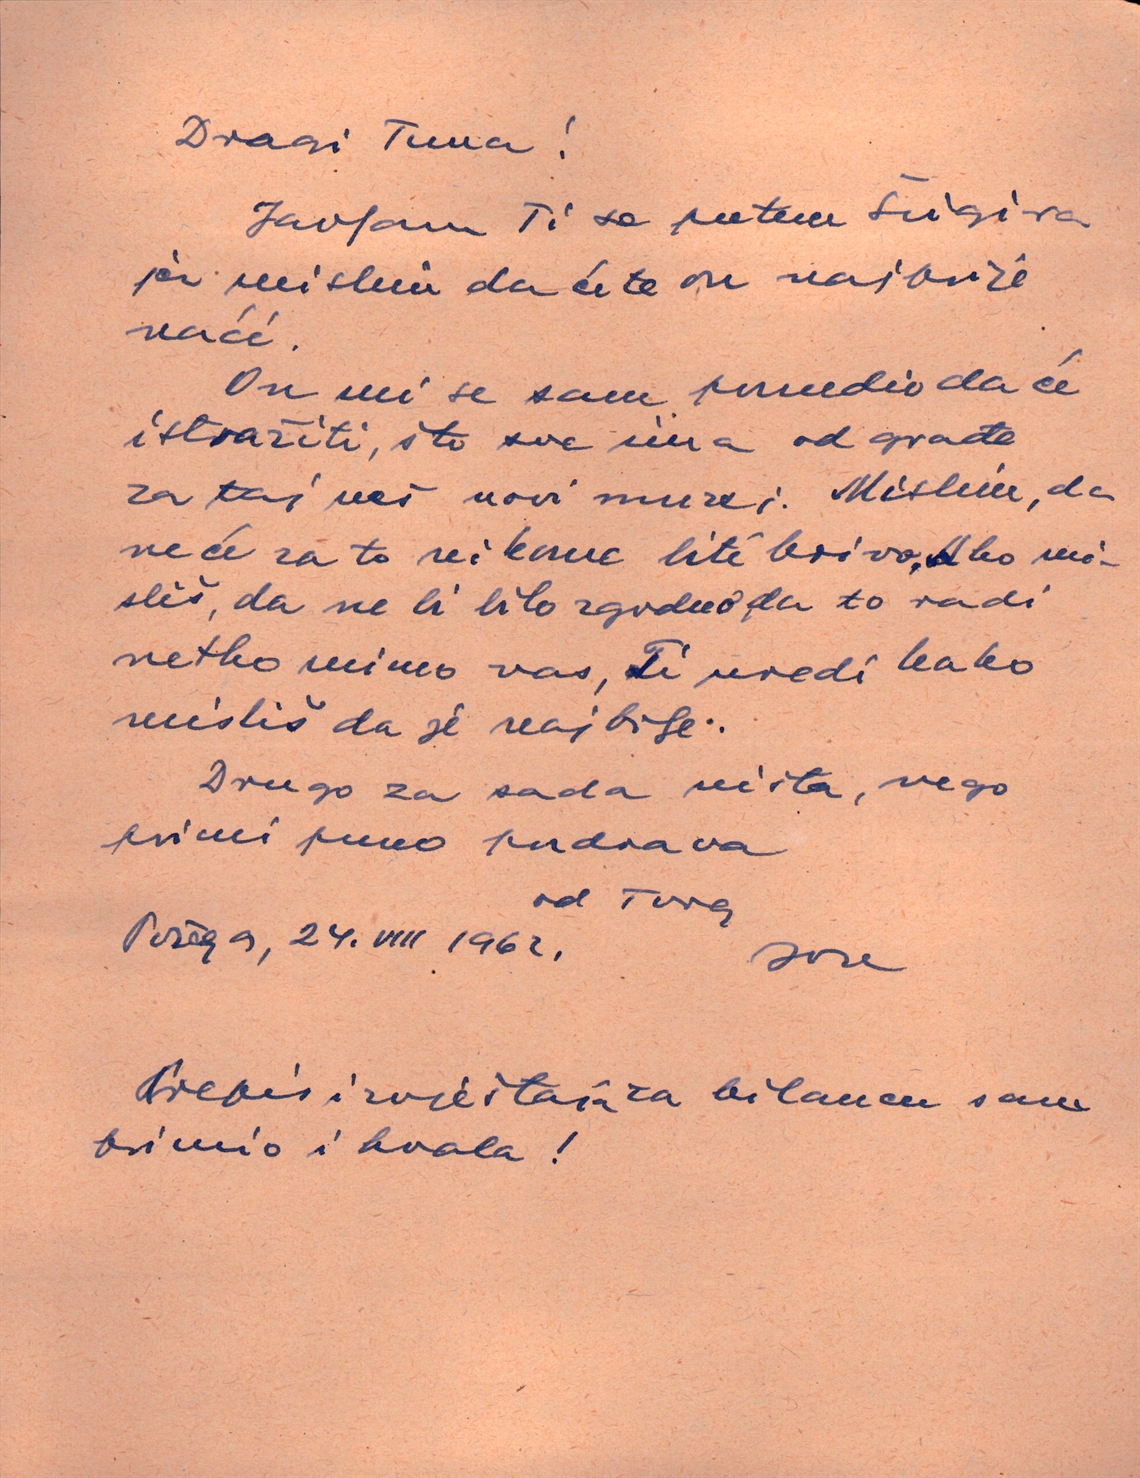 Dragi Tuna!
Javljam Ti se putem Šrigira
jer mislim da će te on najbrže
naći.
On mi se sam ponudio da će
istražiti, što sve ima od građe
za taj naš novi muzej. Mislim, da
neće za to nikome biti krivo. Ako mi-
sliš, da ne bi bilo zgodno da to radi
netko mimo vas, Ti uredi kako
misliš da je najbolje.
Drugo za sada ništa, nego
primi puno pozdrava
od Tvog
Požega, 24. VIII 1962.
Joze
Prepis izvještaja za bilancu sam
primio i hvala!